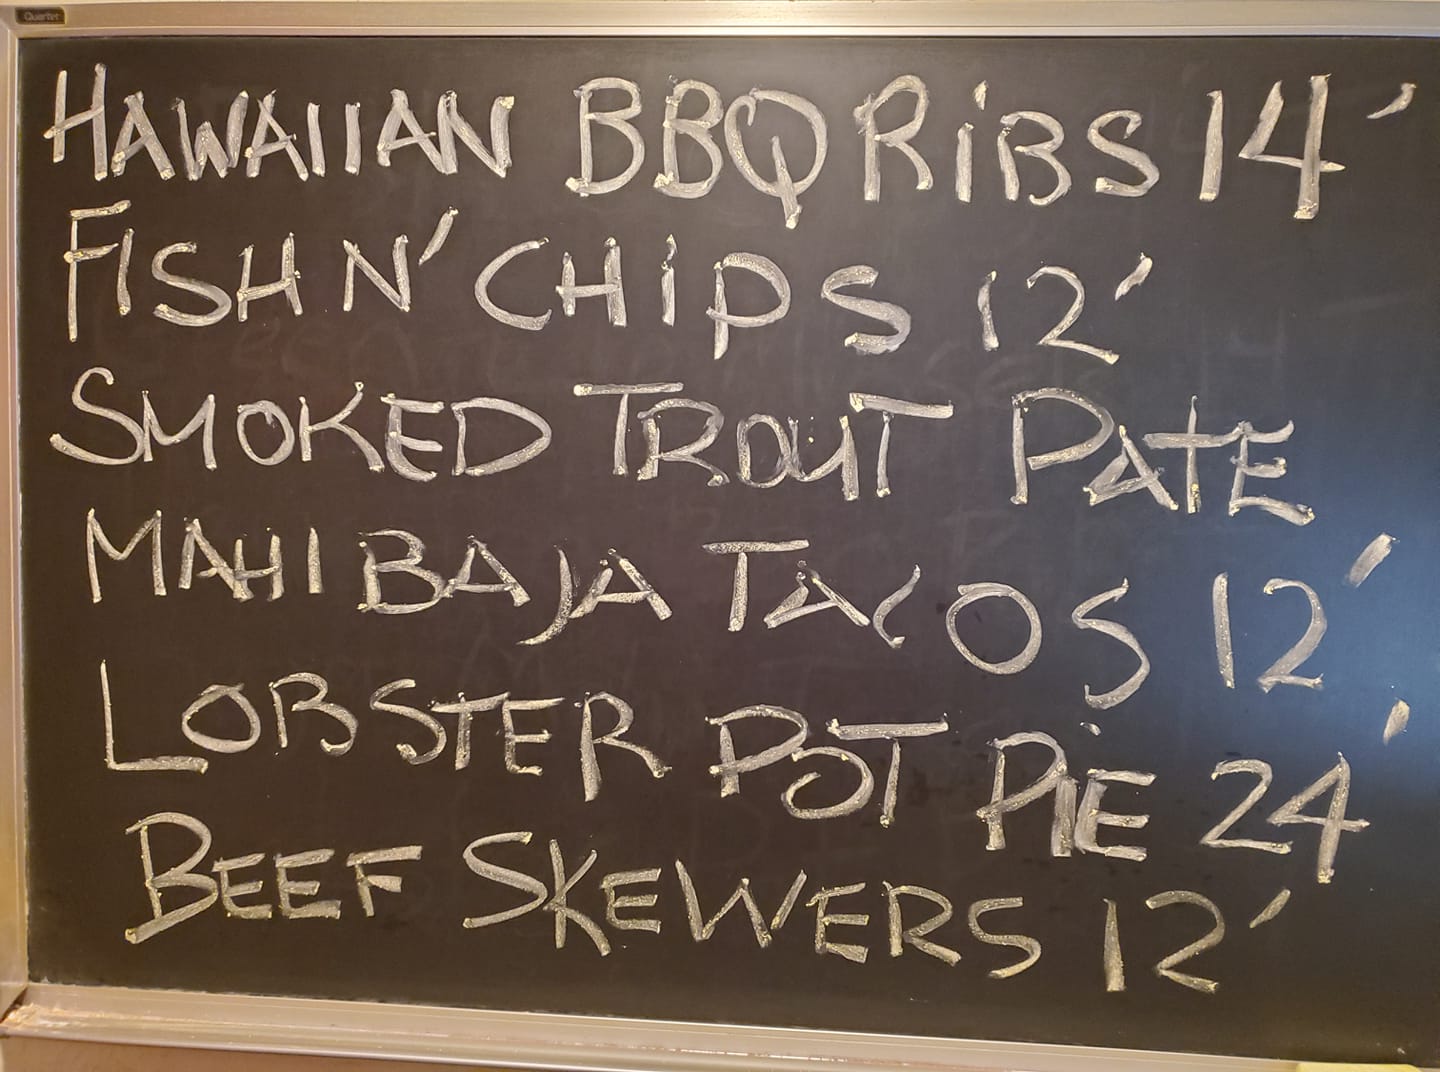 Quartet
HAWAIIAN BBQ RiBS 14'
FISH N' CHiPS 12'
SMOKED TROUT PATE
MAHI BAJA TACOS 12'
LOBSTER POT PiE 24'
BEEF SKEWERS 12'